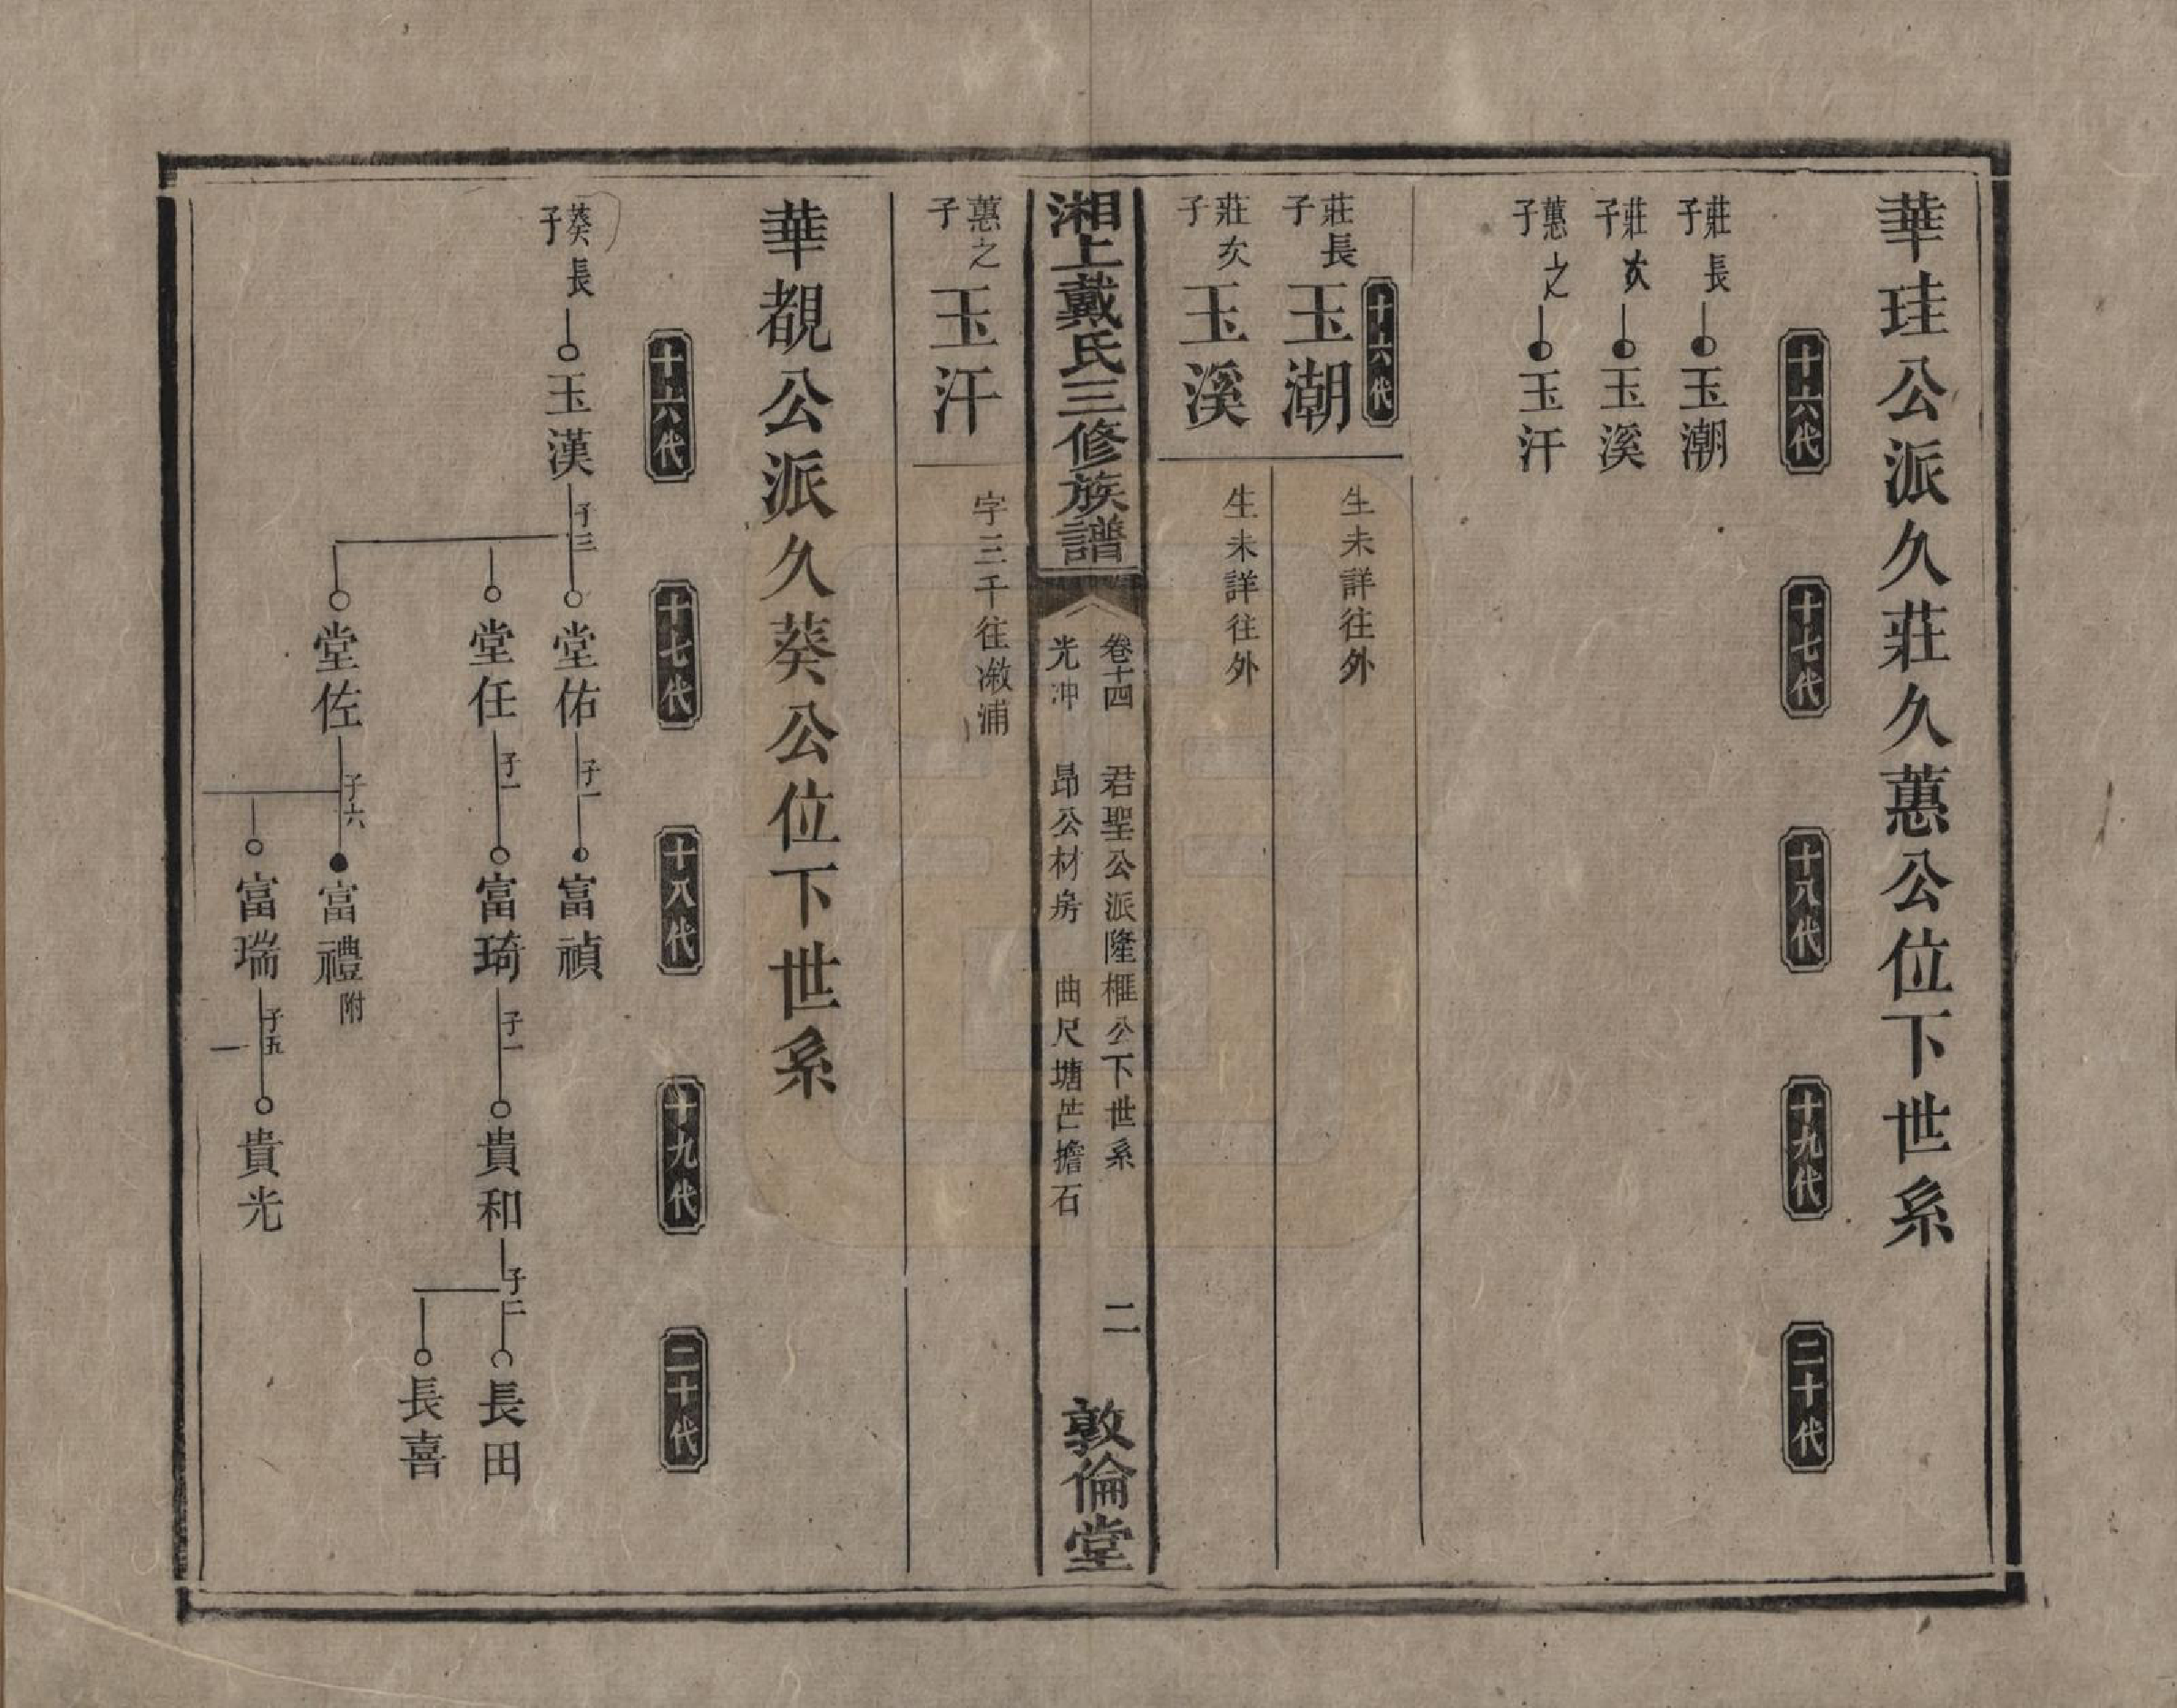 華珪公派久莊久蕙公位下世系
十六代
十七代
十八代
十九代
二十代
莊長子 玉潮
莊次子 玉溪
蕙之子 玉汗
十六代
莊長子 玉潮
生未詳往外
莊次子 玉溪
生未詳往外
湘上戴氏三修族譜
卷十四 君聖公派隆榧公下世系 二
光冲 昂公材房 曲尺塘芒擔石
敦倫堂
蕙之子 玉汗
字三千往漵浦
華覩公派久葵公位下世系
十六代
十七代
十八代
十九代
二十代
葵長子 玉漢 子三
堂佑 子一 富禎
堂任 子一 富琦 子一 貴和 子二 長田
長喜
堂佐 子六 富禮附
富瑞 子五 貴光